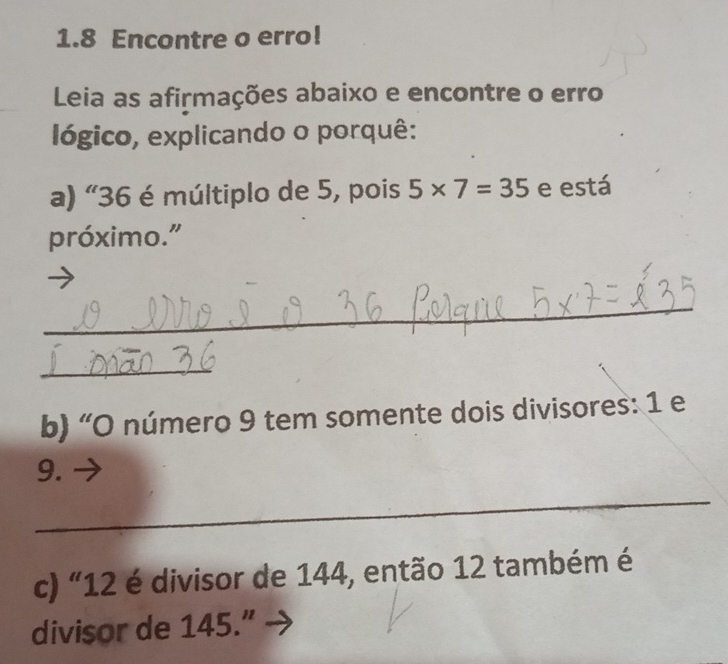 1.8 Encontre o erro!
Leia as afirmações abaixo e encontre o erro
lógico, explicando o porquê:
a) “36 é múltiplo de 5, pois 5 × 7 = 35 e está
próximo.”
→
o erro é o 36 Porque 5x7= é 35
i não 36
b) “O número 9 tem somente dois divisores: 1 e
9. →
c) “12 é divisor de 144, então 12 também é
divisor de 145.” →